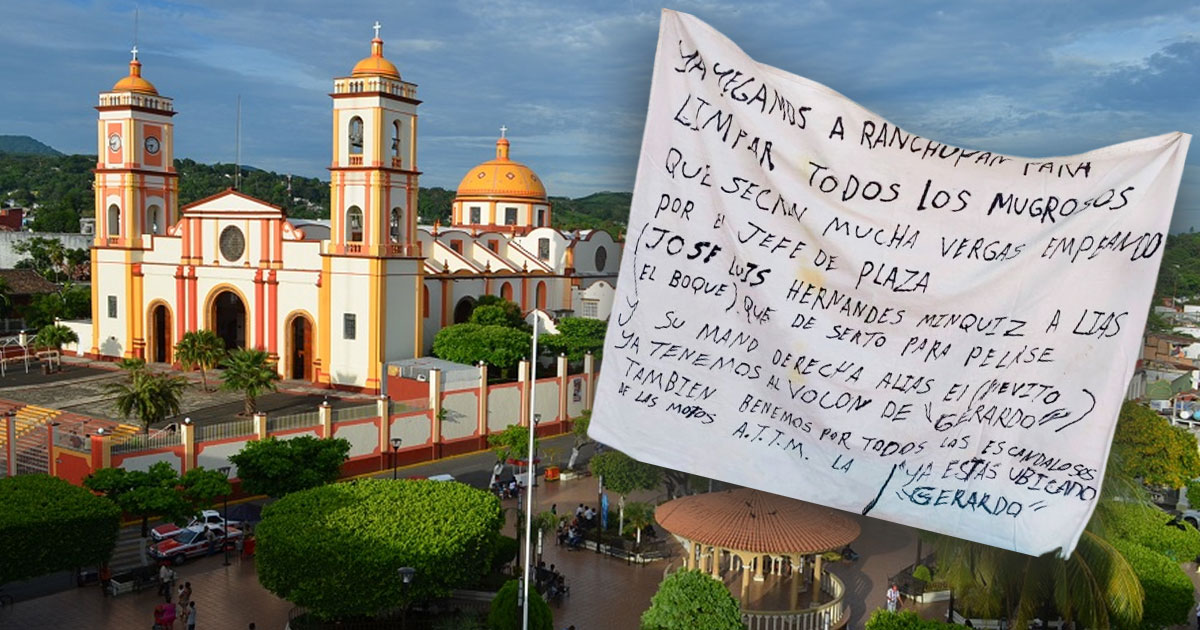 YA YEGAMOS A RANCHOPAN PARA
LIMPAR TODOS LOS MUGROSOS
QUE SECRN MUCHA VERGAS EMPEANDO
POR El JEFE DE PLAZA
(JOSE LUIS HERNANDES MINQUIZ A LIAS
(EL BOQUE). QUE DE SERTO PARA PELISE
Y SU MANO DERECHA ALIAS El (MEVITO)
YA TENEMOS AL VOLON DE "GERARDO")
TAMBIEN BENEMOS POR TODOS LOS ESCANDALOSOS
DE LAS MOTOS A.T.T.M. LA
"YA ESTAS UBICADO
"GERARDO"